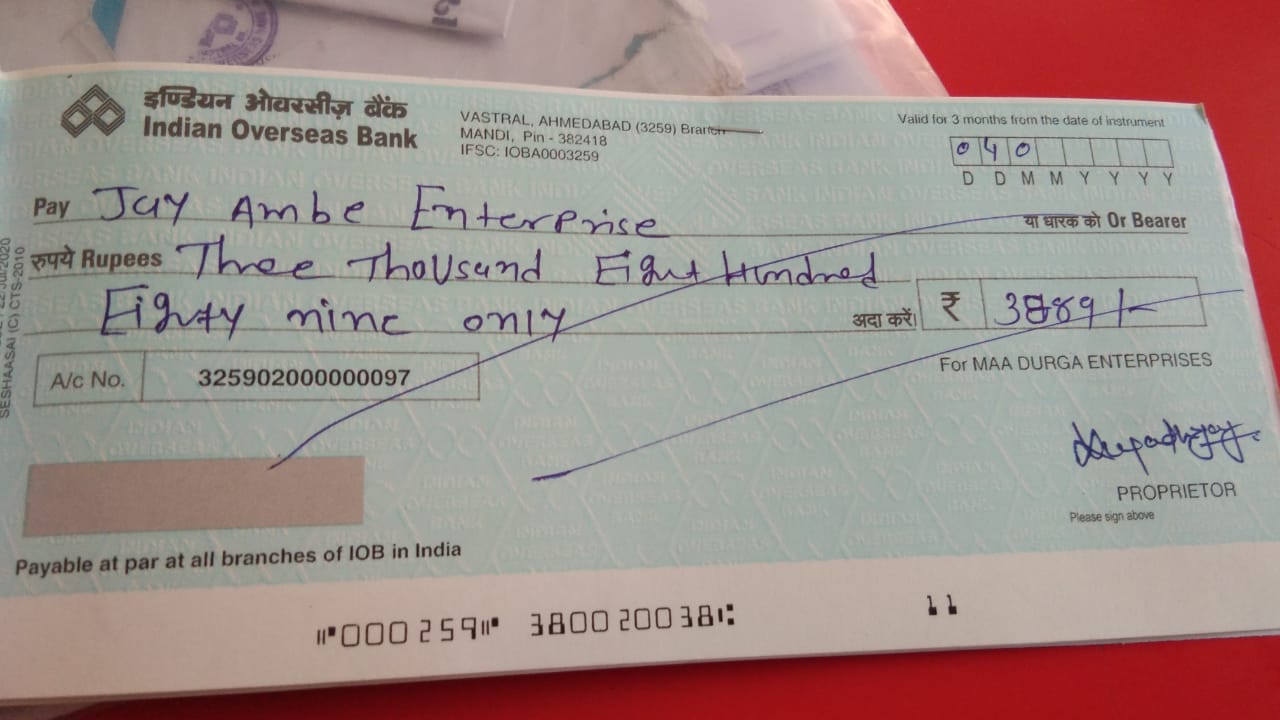 इण्डियन ओवरसीज़ बैंक
Indian Overseas Bank
VASTRAL, AHMEDABAD (3259) Branch
MANDI, Pin - 382418
IFSC: IOBA0003259
Valid for 3 months from the date of instrument
0 4 0
D D M M Y Y Y Y
Pay Jay Ambe Enterprise
या धारक को Or Bearer
रुपये Rupees Three Thousand Eight Hundred
Eighty nine only
अदा करें। ₹ 3889/-
A/c No. 325902000000097
For MAA DURGA ENTERPRISES
PROPRIETOR
Please sign above
Payable at par at all branches of IOB in India
⑈000259⑈ 380020038⑆ 11
SESHAASAI (C) CTS-2010